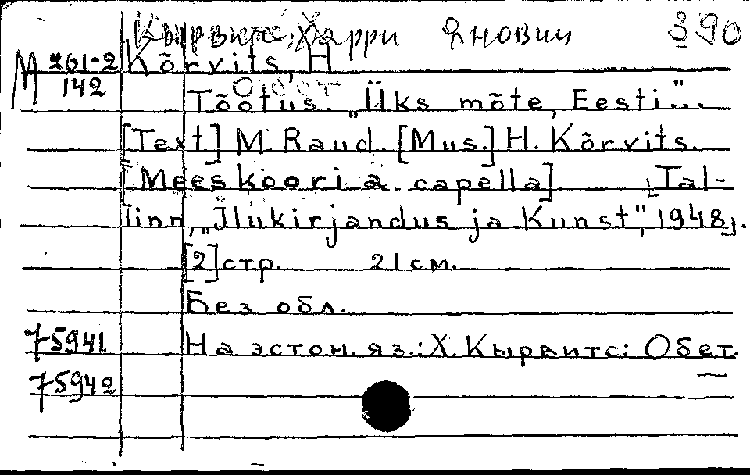 Кырвитс, Харри Янович 390
М 261-2 Kõrvits, H
142
Tõotus. „Üks mõte, Eesti"...
[Text] M. Raud. [Mus.] H. Kõrvits.
[Meeskoori a capella] [Tal-
linn, „Ilukirjandus ja Kunst", 1948].
[2] стр. 21 см.
Без обл.
75941 На эстон. яз.: Х. Кырвитс: Обет.
75942